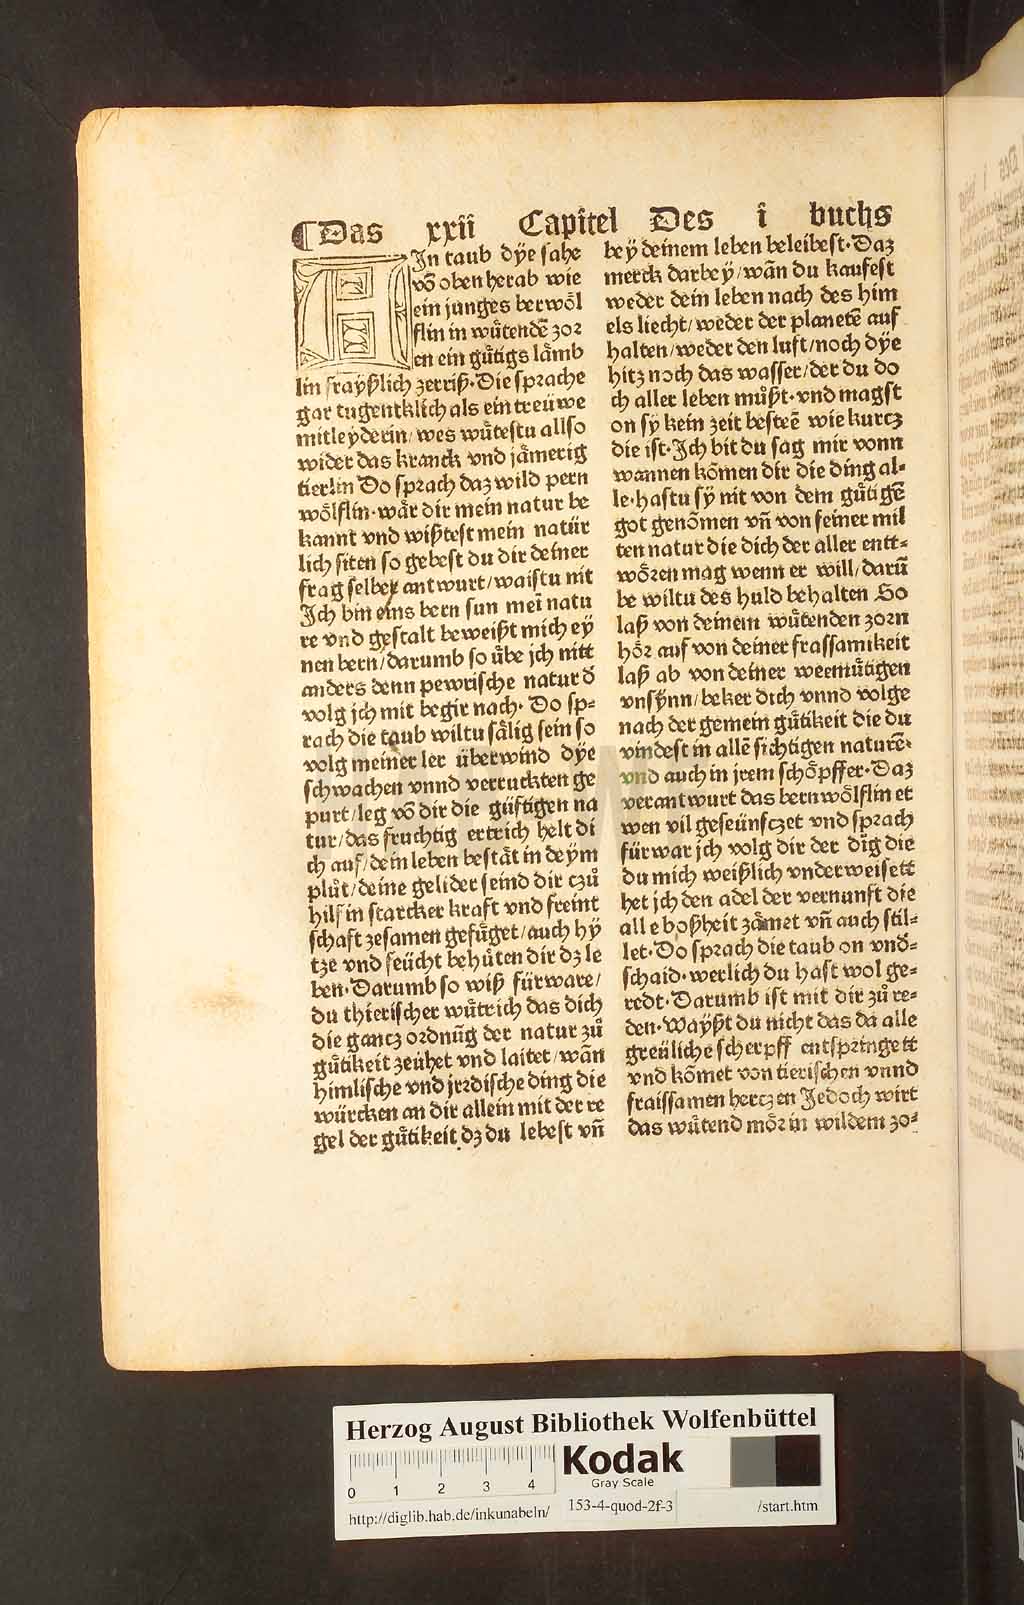 ¶Das xxii Capitel Des i buchs
EIn taub dÿe sahe
võ oben herab wie
ein junges berwoͤl
flin in wuͤtendē zor
en ein guͤtigs laͤmb
lin frayßlich zerriß·Die sprache
gar tugentklich als ein treüwe
mitleyderin/wes wuͤtestu allso
wider das kranck vnd jaͤmerig
tierlin Do sprach daz wild pern
woͤlflin·waͤr dir mein natur be
kannt vnd wißtest mein natür
lich siten so gebest du dir deiner
frag selber antwurt/waistu nit
Ich bin eins bern sun mei natu
re vnd gestalt beweißt mich eÿ
nen bern/darumb so uͤbe jch nitt
anders denn pewrische natur d̄
volg jch mit begir nach· Do sp⸗
rach die taub wiltu saͤlig sein so
volg meiner ler überwind dÿe
schwachen vnnd verruckten ge
purt/leg võ dir die güftigen na
tur/das fruchtig ertrich helt di
ch auf/dein leben bestaͤt in deÿm
pluͤt/deine gelider seind dir czuͦ
hilf in starcker kraft vnd freint
schaft zesamen gefuͤget/auch hÿ
tze vnd feücht behuͤten dir dz le
ben·Darumb so wiß fürware/
du thierischer wuͤtrich das dich
die gancz ordnūg der natur zuͦ
guͤtikeit zeühet vnd laitet/wān
himlische vnd jrrdische ding die
würcken an dir allein mit der re
gel der guͤtikeit dz du lebest vn̄
beÿ deinem leben beleibest·Daz
merck darbeÿ/wān du kaufest
weder dein leben nach des him
els liecht/weder der planetē auf
halten/weder den luft/noch dÿe
hitz noch das wasser/der du do
ch aller leben muͦßt·vnd magst
on sÿ kein zeit besteē wie kurcz
die ist·Ich bit du sag mir vonn
wannen koͤmen dir die ding al⸗
le·hastu sÿ nit von dem guͤtigē
got genōmen vn̄ von seiner mil
ten natur die dich der aller entt⸗
woͤren mag wenn er will/darū
be wiltu des huld behalten So
laß von deinem wuͤtenden zorn
hoͤr auf von deiner frassamkeit
laß ab von deiner weemuͤtigen
vnsÿnn/beker dich vnnd volge
nach der gemein guͤtikeit die du
vindest in allē sichtigen naturē·
vnd auch in jrem schoͤpffer·Daz
verantwurt das bernwoͤlflin et
wen vil geseünfczet vnd sprach
fürwar jch volg dir der dīg die
du mich weißlich vnderweisett
het jch den adel der vernunft die
alle boßheit zaͤmet vn̄ auch stil⸗
let·Do sprach die taub on vnd⸗
schaid·werlich du hast wol ge⸗
redt·Darumb ist mit dir zuͦ re⸗
den·Wayßt du nicht das da alle
greüliche scherpff entspringett
vnd koͤmet von tierischen vnnd
fraissamen herczen Jedoch wirt
das wuͤtend moͤr in wildem zo⸗
Herzog August Bibliothek Wolfenbüttel
0 1 2 3 4
Kodak
Gray Scale
http://diglib.hab.de/inkunabeln/
153-4-quod-2f-3
/start.htm